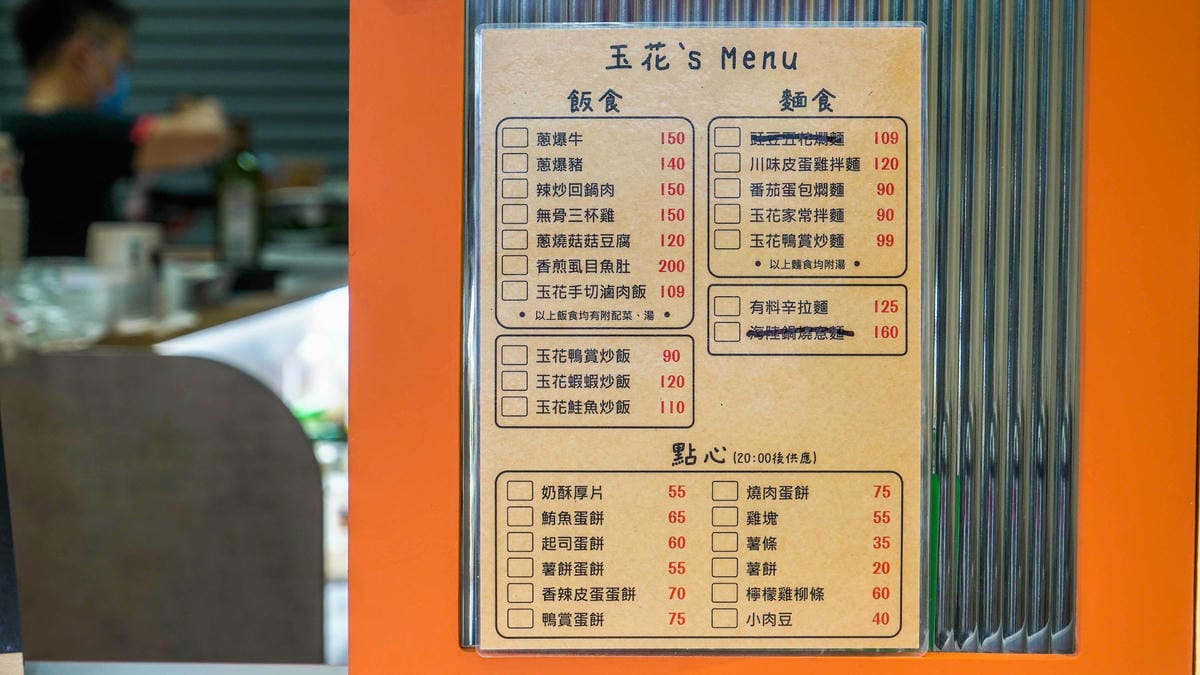 玉花's Menu
飯食
蔥爆牛 150
蔥爆豬 140
辣炒回鍋肉 150
無骨三杯雞 150
蔥燒菇菇豆腐 120
香煎虱目魚肚 200
玉花手切滷肉飯 109
• 以上飯食均有附配菜、湯 •
玉花鴨賞炒飯 90
玉花蝦蝦炒飯 120
玉花鮭魚炒飯 110
麵食
豇豆五花燜麵 109
川味皮蛋雞拌麵 120
番茄蛋包燜麵 90
玉花家常拌麵 90
玉花鴨賞炒麵 99
• 以上麵食均附湯 •
有料辛拉麵 125
海陸鍋燒意麵 160
點心 (20:00後供應)
奶酥厚片 55
鮪魚蛋餅 65
起司蛋餅 60
薯餅蛋餅 55
香辣皮蛋蛋餅 70
鴨賞蛋餅 75
燒肉蛋餅 75
雞塊 55
薯條 35
薯餅 20
檸檬雞柳條 60
小肉豆 40